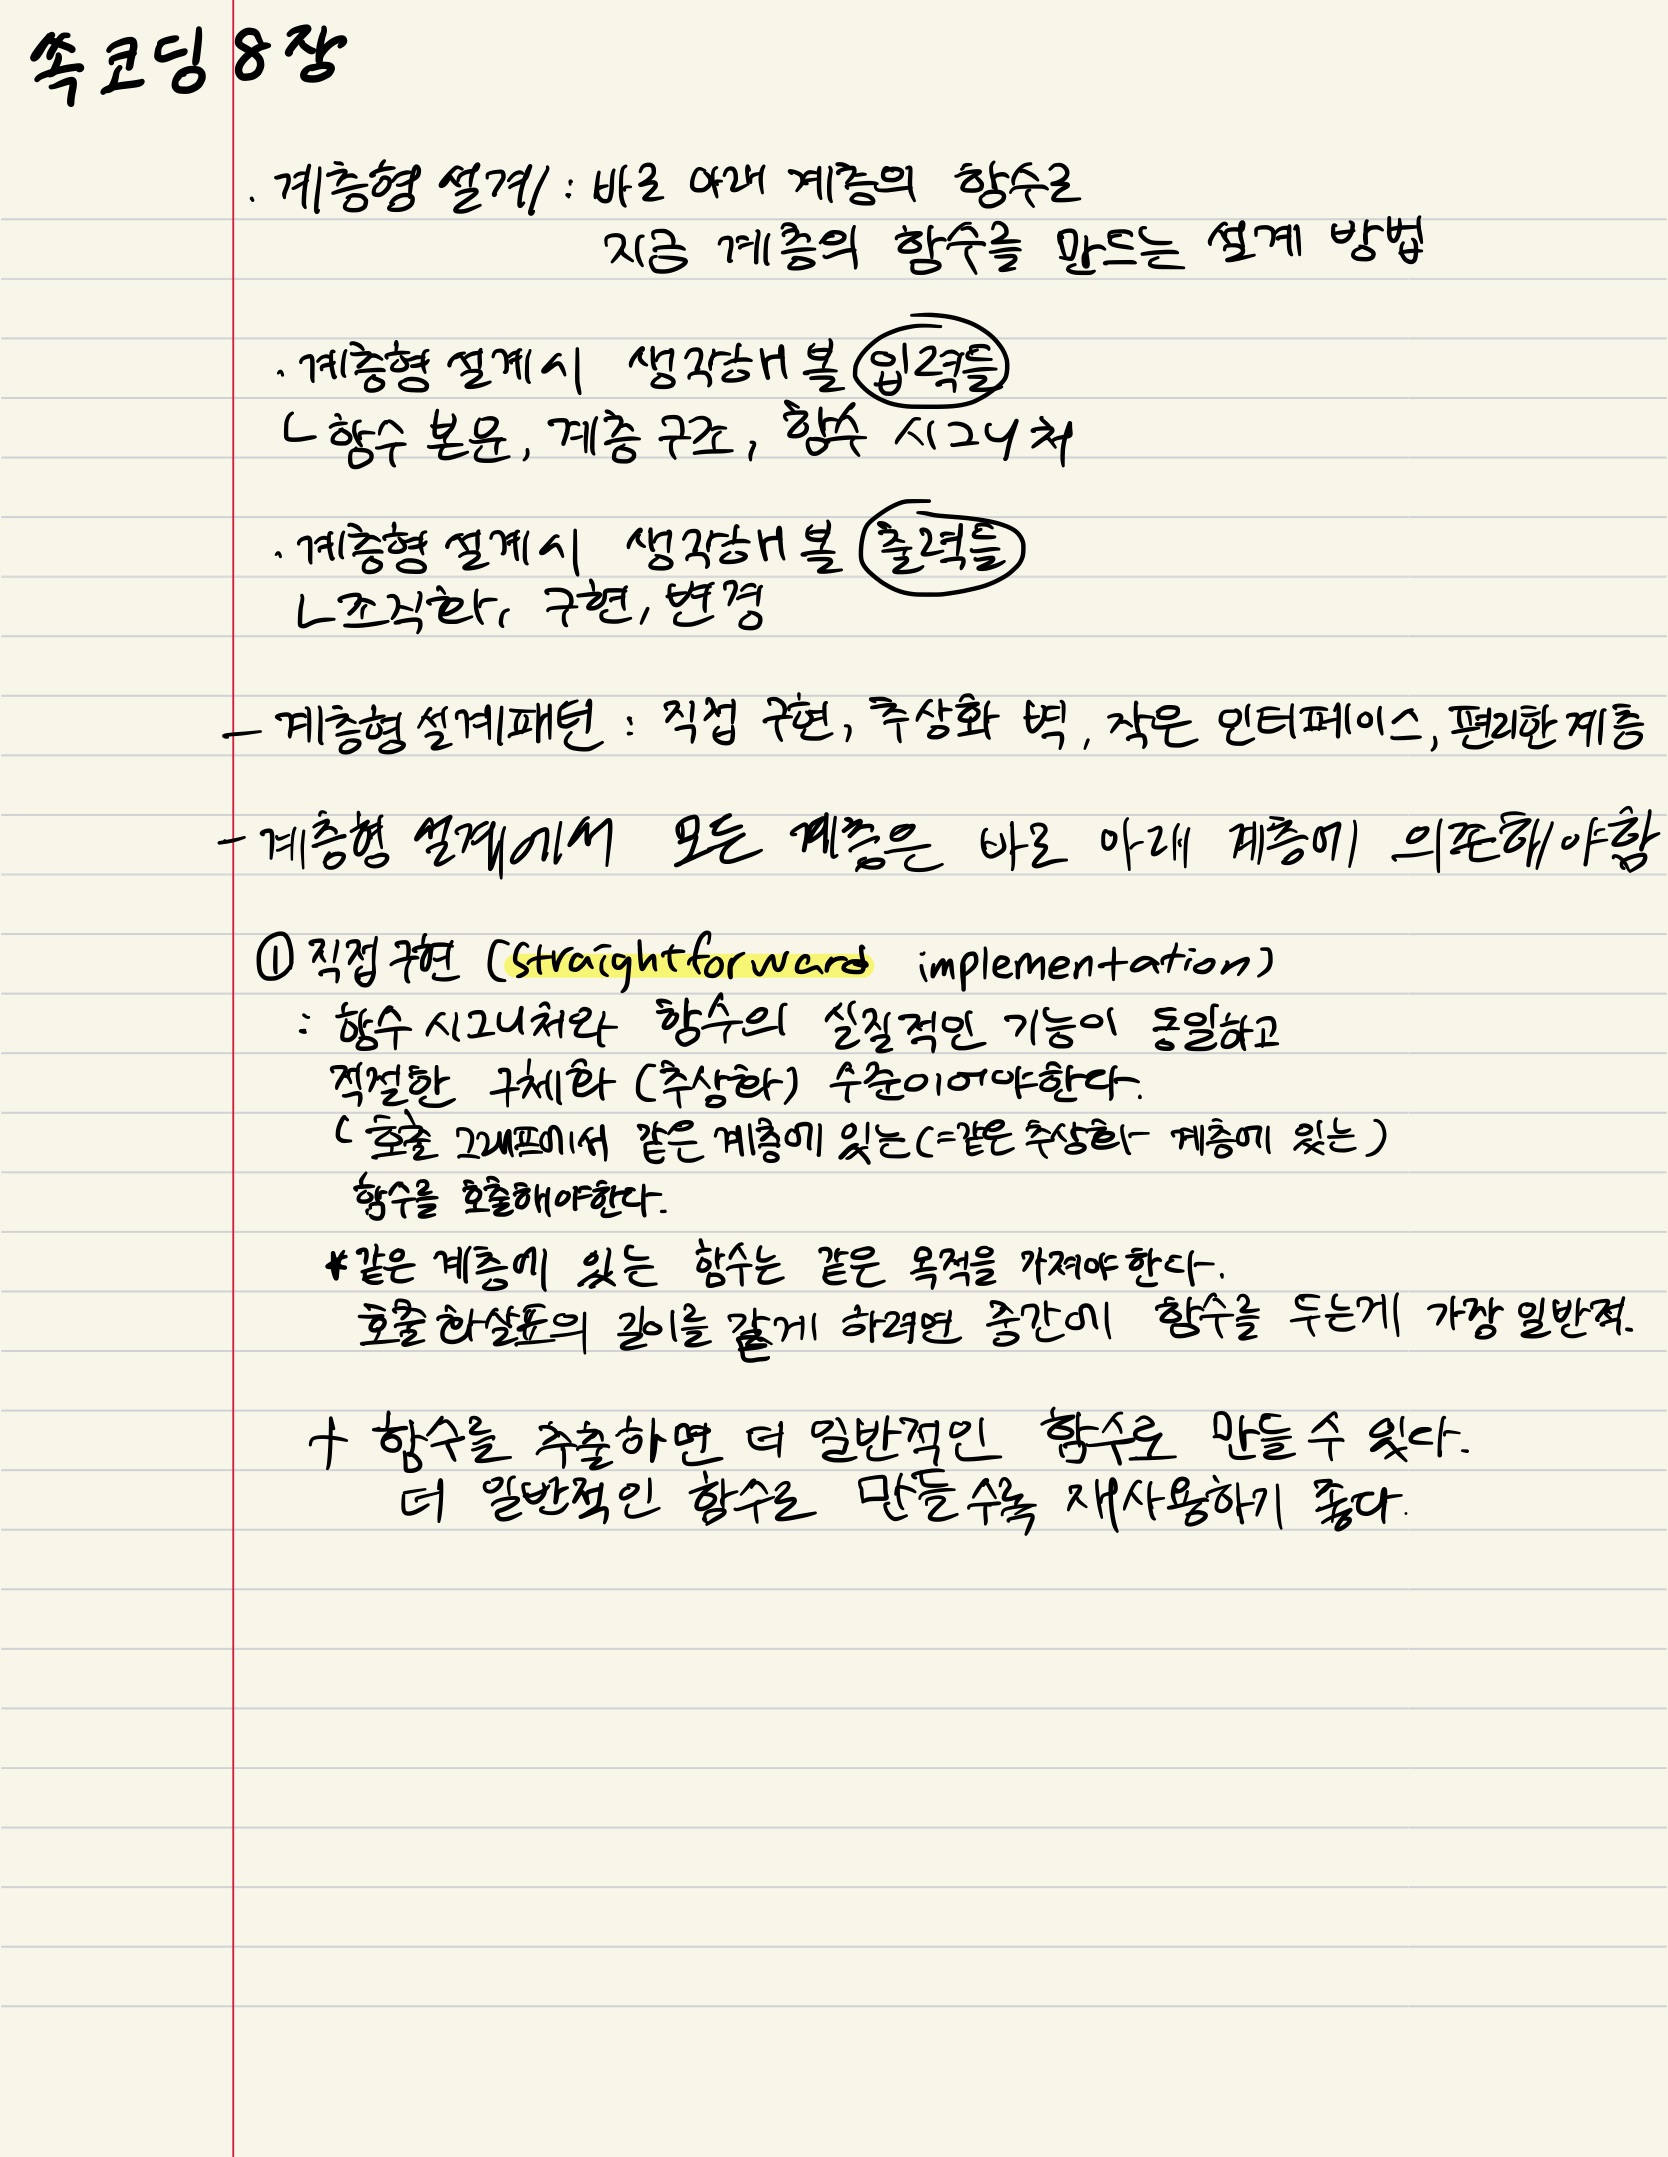 쏙코딩 8장
. 계층형 설계 : 바로 아래 계층의 함수로
지금 계층의 함수를 만드는 설계 방법
. 계층형 설계시 생각해 볼 입력들
ㄴ 함수 본문, 계층 구조, 함수 시그니처
. 계층형 설계시 생각해 볼 출력들
ㄴ 조직화, 구현, 변경
- 계층형 설계패턴 : 직접 구현, 추상화 벽, 작은 인터페이스, 편리한 계층
- 계층형 설계에서 모든 계층은 바로 아래 계층에 의존해야함
① 직접 구현 (straightforward implementation)
: 함수 시그니처와 함수의 실질적인 기능이 동일하고
적절한 구체화 (추상화) 수준이어야한다.
ㄴ 호출 그래프에서 같은 계층에 있는 (=같은 추상화 계층에 있는)
함수를 호출해야한다.
* 같은 계층에 있는 함수는 같은 목적을 가져야한다.
호출 화살표의 길이를 같게 하려면 중간에 함수를 두는게 가장 일반적.
+ 함수를 추출하면 더 일반적인 함수로 만들 수 있다.
더 일반적인 함수로 만들수록 재사용하기 좋다.